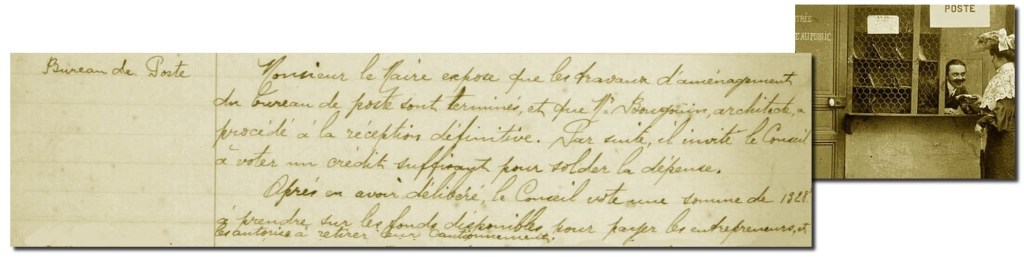 Bureau de Poste
Monsieur le Maire expose que les travaux d'aménagement
du bureau de poste sont terminés, et que Mr architecte, a
procédé à la réception définitive. Par suite, il invite le Conseil
à voter un crédit suffisant pour solder la dépense.
Après en avoir délibéré, le Conseil vote une somme de 1328
à prendre sur les fonds disponibles pour payer les entrepreneurs, et
les autorise à retirer leur cautionnement.
POSTE